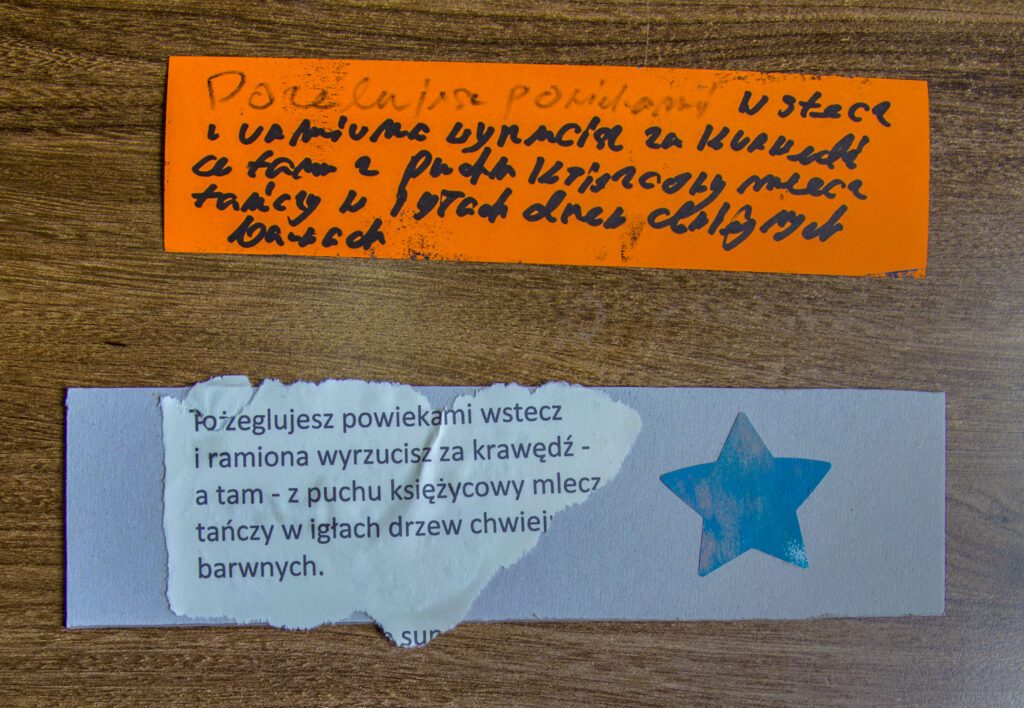 Pożeglujesz powiekami wstecz
i ramiona wyrzucisz za krawędź
a tam z puchu księżycowy mlecz
tańczy w igłach drzew
Pożeglujesz powiekami wstecz
i ramiona wyrzucisz za krawędź -
a tam - z puchu księżycowy mlecz
tańczy w igłach drzew chwiej
barwnych.